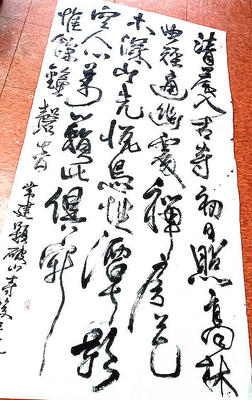 清晨入古寺初日照高林
曲徑通幽處禪房花
木深山光悅鳥性潭影
空人心萬籟此俱寂
惟餘鐘磬音
常建題破山寺後